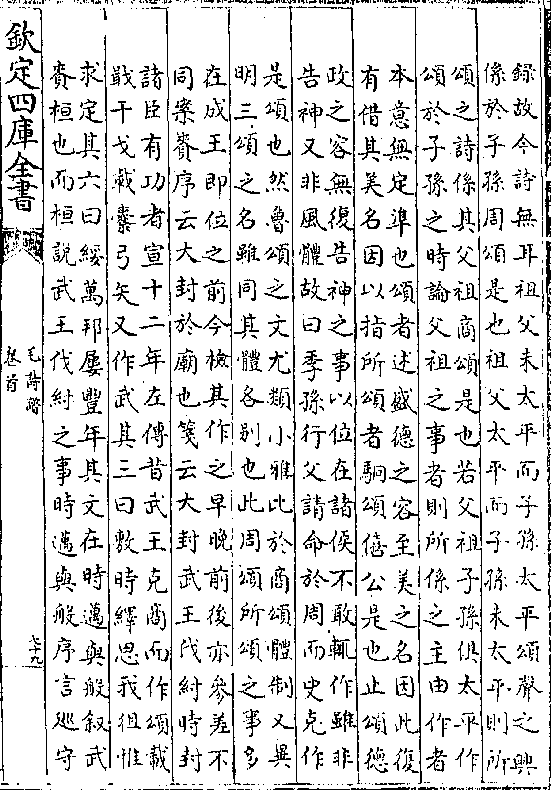 錄故今詩無耳祖父未太平而子孫太平頌聲之興
係於子孫周頌是也祖父太平而子孫未太平則所
頌之詩係其父祖商頌是也若父祖子孫俱太平作
頌於子孫之時論父祖之事者則所係之主由作者
本意無定準也頌者述盛德之容至美之名因此復
有借其美名因以指所頌者駉頌僖公是也止頌德
政之容無復告神之事以位在諸侯不敢輒作雖非
告神又非風體故曰季孫行父請命於周而史克作
是頌也然魯頌之文尤類小雅比於商頌體制又異
明三頌之名雖同其體各别也此周頌所頌之事多
在成王即位之前今檢其作之早晚前後亦參差不
同案賚序云大封於廟也箋云大封武王伐紂時封
諸臣有功者宣十二年左傳昔武王克商而作頌載
戢干戈載櫜弓矢又作武其三曰敷時繹思我徂惟
求定其六曰綏萬邦屢豐年其文在時邁與般敘武
賚桓也而桓説武王伐紂之事時邁與般序言廵守
欽定四庫全書
毛詩譜
卷首
七十九